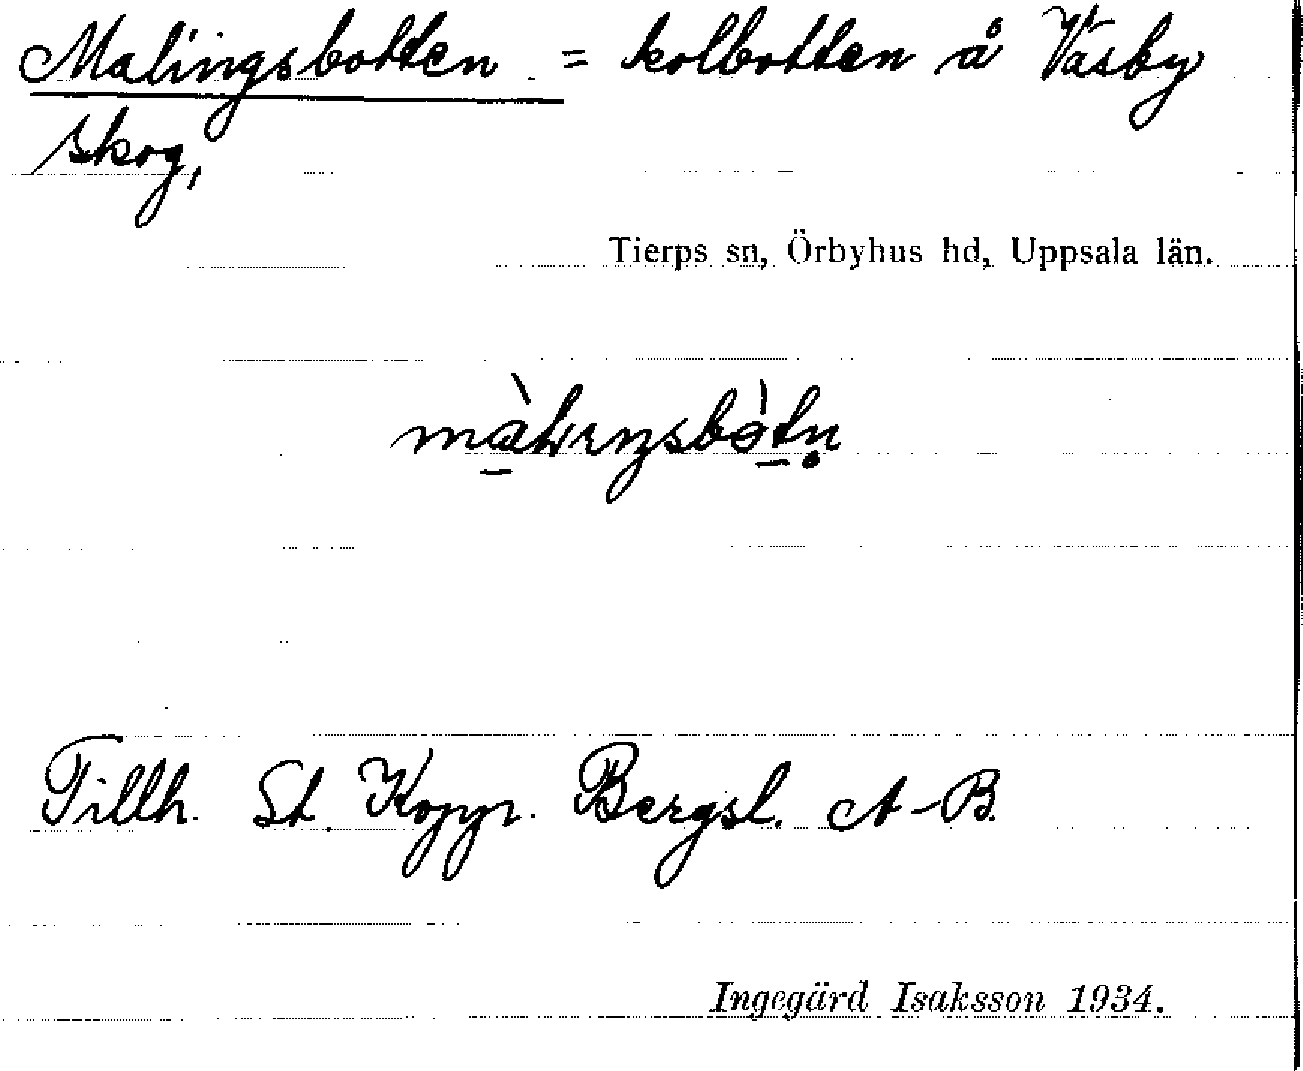 Malingsbotten = kolbotten å Väsby
skog,
Tierps sn, Örbyhus hd, Uppsala län.
Tillh. St. Kopp. Bergsl. A-B.
Ingegärd Isaksson 1934.